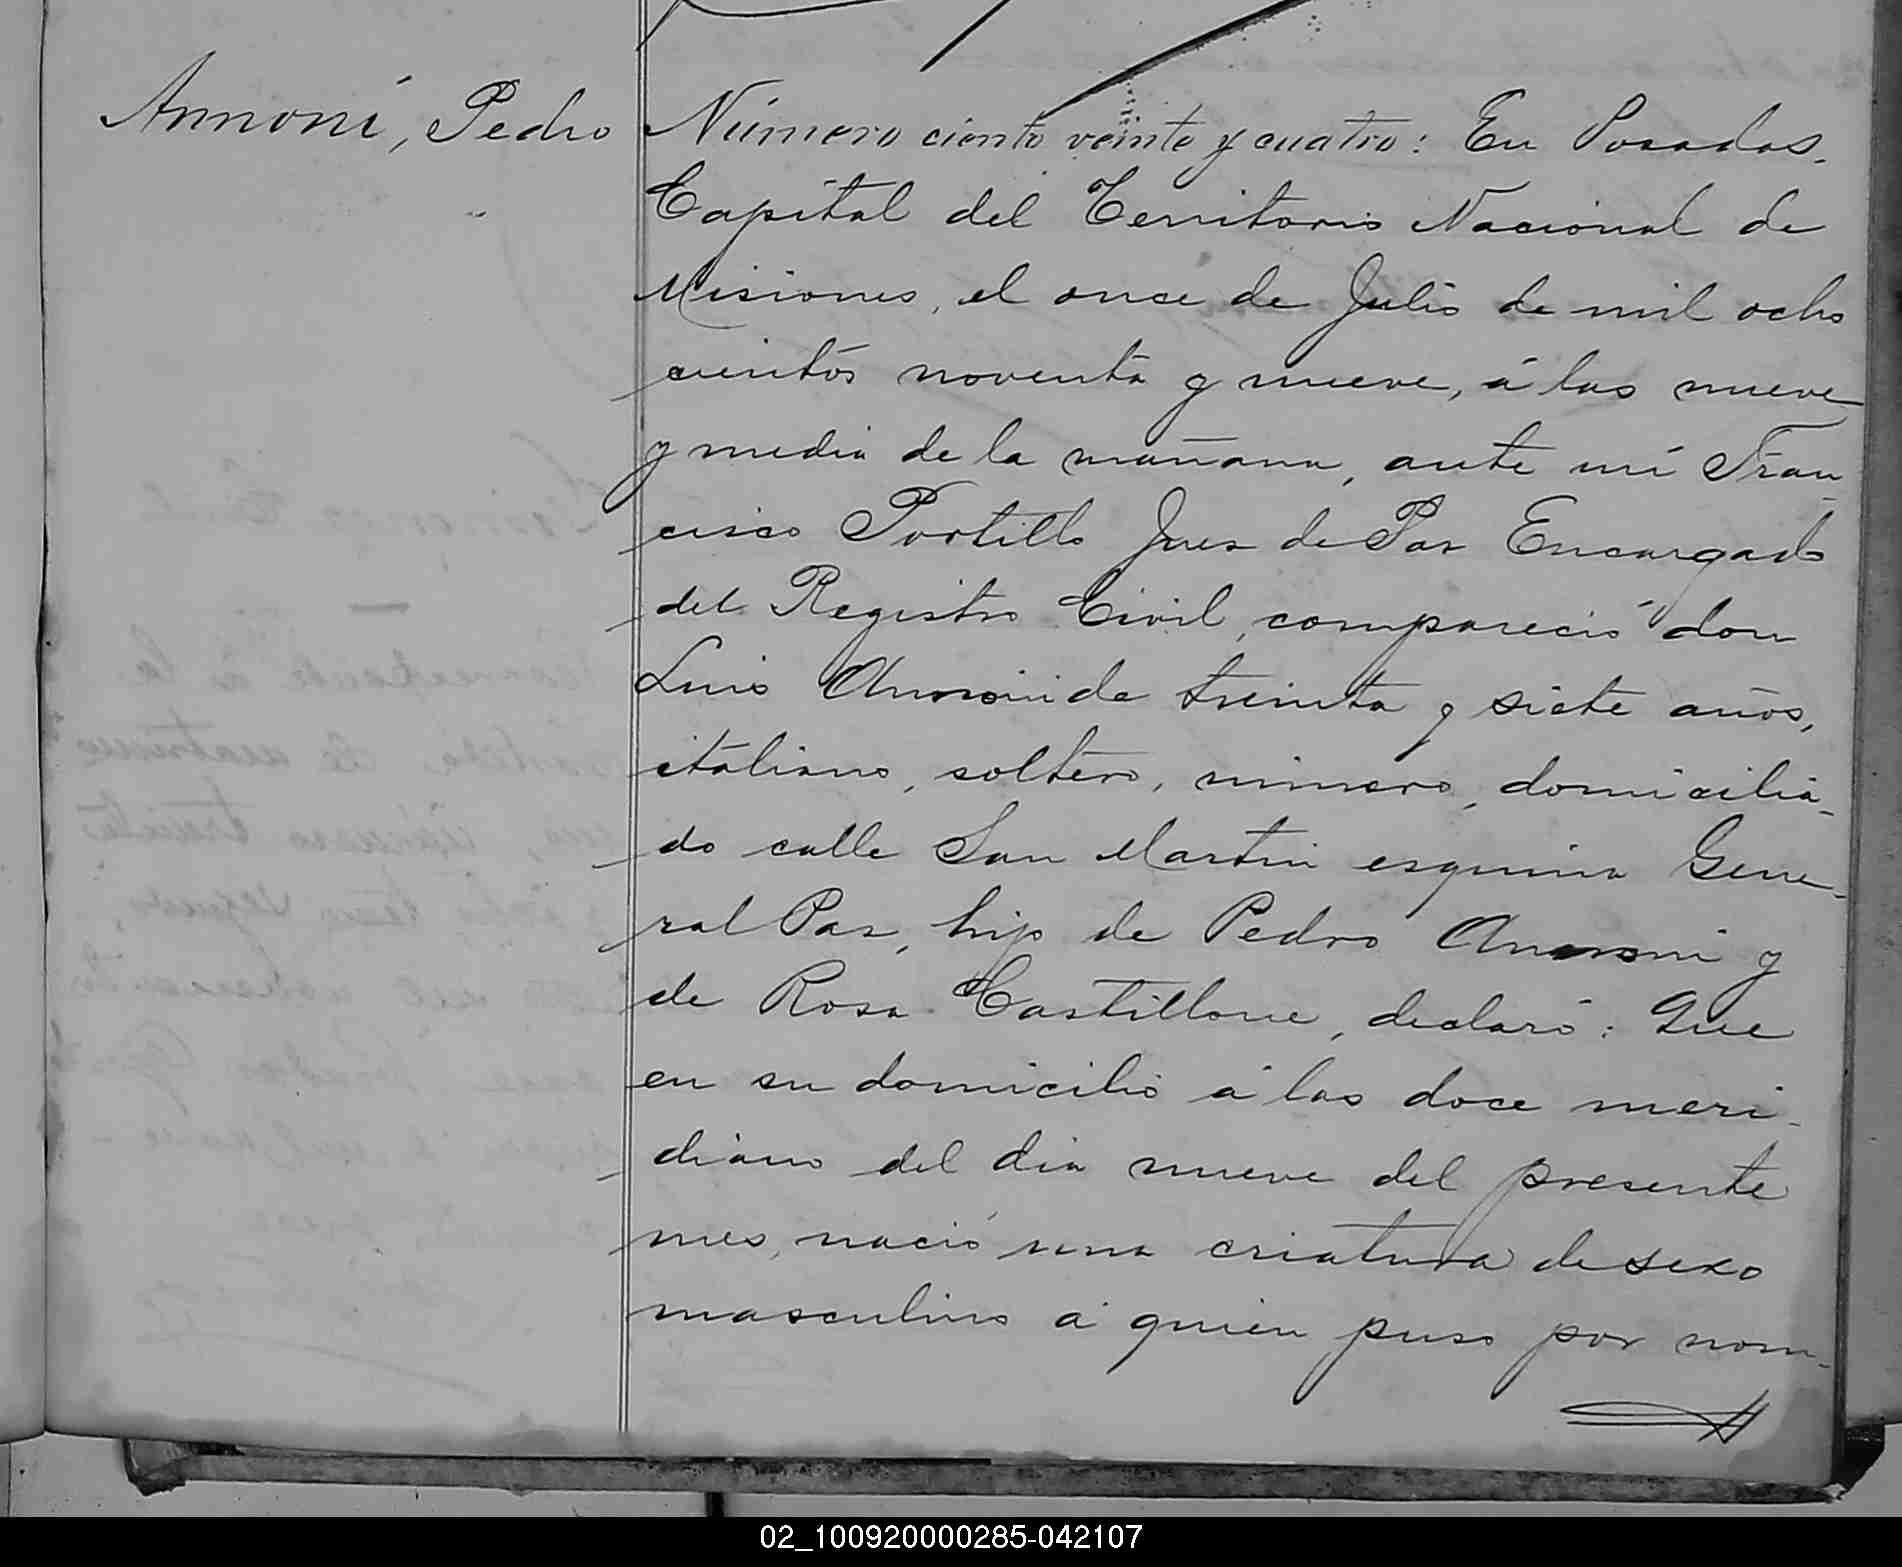 Annoni, Pedro
Número ciento veinte y cuatro: En Posadas,
Capital del Territorio Nacional de
Misiones, el once de Julio de mil ocho
cientos noventa y nueve, á las nueve
y media de la mañana, ante mí Fran
cisco Portillo Juez de Paz Encargado
del Registro Civil, compareció don
Luis Annoni de treinta y siete años,
italiano, soltero, minero, domicilia-
do calle San Martin esquina Gene-
ral Paz, hijo de Pedro Annoni y
de Rosa Castillone, declaró: Que
en su domicilio á las doce meri-
diano del dia nueve del presente
mes, nació una criatura de sexo
masculino á quien puso por nom-
02_100920000285-042107